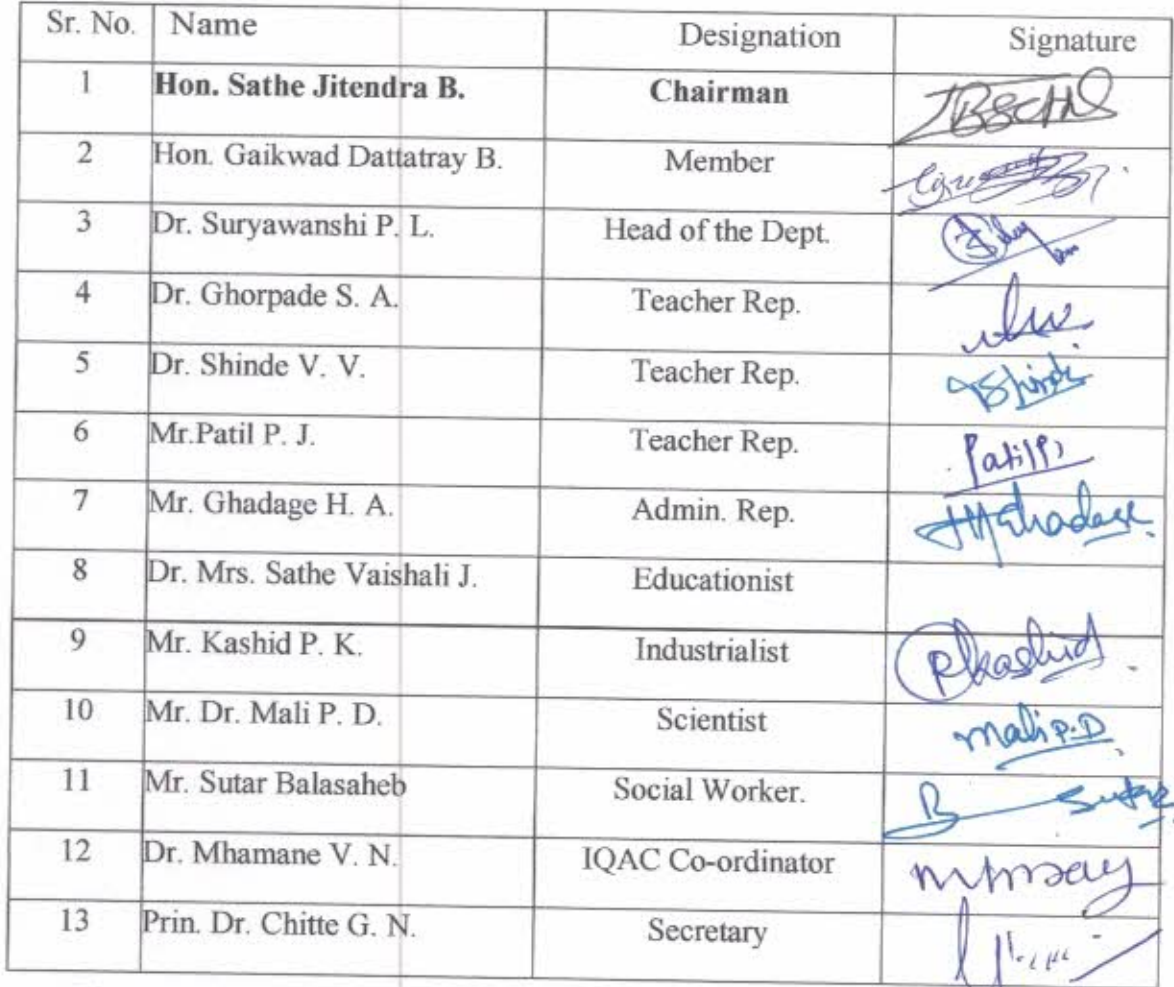 Sr. No. Name Designation Signature
1 Hon. Sathe Jitendra B. Chairman
2 Hon. Gaikwad Dattatray B. Member
3 Dr. Suryawanshi P. L. Head of the Dept.
4 Dr. Ghorpade S. A. Teacher Rep.
5 Dr. Shinde V. V. Teacher Rep. Shinde
6 Mr.Patil P. J. Teacher Rep.
7 Mr. Ghadage H. A. Admin. Rep. HAGhadage
8 Dr. Mrs. Sathe Vaishali J. Educationist
9 Mr. Kashid P. K. Industrialist Pkashid
10 Mr. Dr. Mali P. D. Scientist Mali P.D
11 Mr. Sutar Balasaheb Social Worker. B Sutar
12 Dr. Mhamane V. N. IQAC Co-ordinator
13 Prin. Dr. Chitte G. N. Secretary